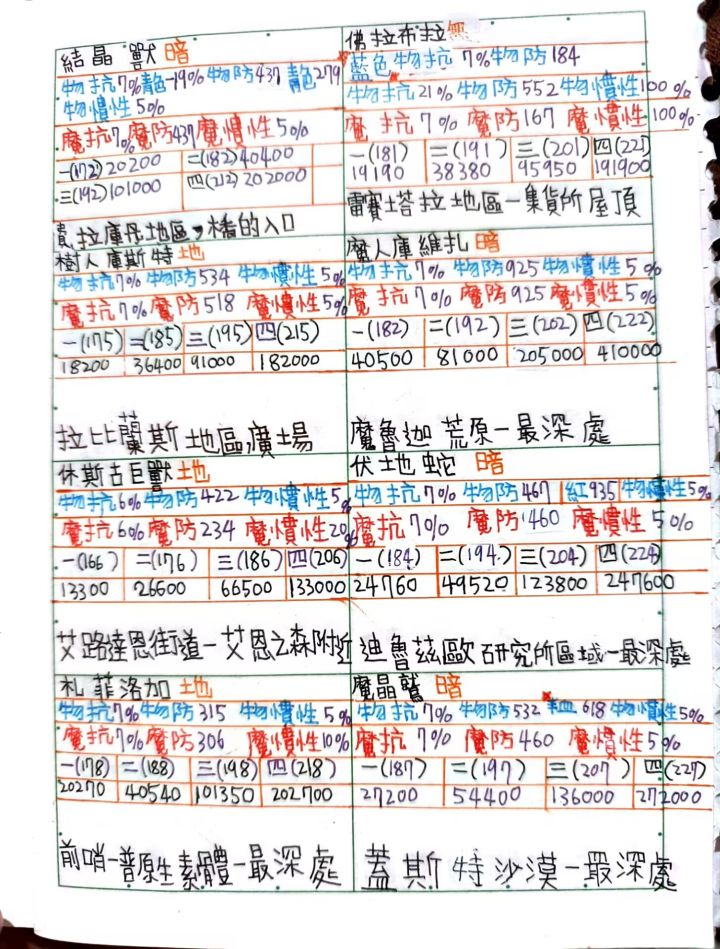 結晶獸 暗
物抗7% 青色-19% 物防437 青色279
物慣性5%
魔抗7% 魔防437 魔慣性5%
一(172)20200 二(182)40400
三(192)101000 四(212)202000
貴拉庫丹地區、橋的入口
樹人庫斯特 地
物抗7% 物防534 物慣性5%
魔抗7% 魔防518 魔慣性5%
一(175) 二(185) 三(195) 四(215)
18200 36400 91000 182000
拉比蘭斯地區,廣場
休斯古巨獸 地
物抗6% 物防422 物慣性5%
魔抗6% 魔防234 魔慣性20%
一(166) 二(176) 三(186) 四(206)
13300 26600 66500 133000
艾路達恩街道-艾恩之森附近
札菲洛加 地
物抗7% 物防315 物慣性5%
魔抗7% 魔防306 魔慣性10%
一(178) 二(188) 三(198) 四(218)
20270 40540 101350 202700
前哨-普原生素體-最深處
佛拉布拉 無
藍色 物抗 7% 物防184
物抗21% 物防552 物慣性100%
魔抗7% 魔防167 魔慣性100%
一(181) 二(191) 三(201) 四(221)
19190 38380 95950 191900
雷賽塔拉地區-集貨所屋頂
魔人庫維扎 暗
物抗7% 物防925 物慣性5%
魔抗7% 魔防925 魔慣性5%
一(182) 二(192) 三(202) 四(222)
40500 81000 205000 410000
魔魯迦荒原-最深處
伏地蛇 暗
物抗7% 物防467 紅935 物慣性5%
魔抗7% 魔防460 魔慣性5%
一(184) 二(194) 三(204) 四(224)
24760 49520 123800 247600
迪魯茲歐研究所區域-最深處
魔晶鷲 暗
物抗7% 物防532 618 物慣性5%
魔抗7% 魔防460 魔慣性5%
一(187) 二(197) 三(207) 四(227)
27200 54400 136000 272000
蓋斯特沙漠-最深處